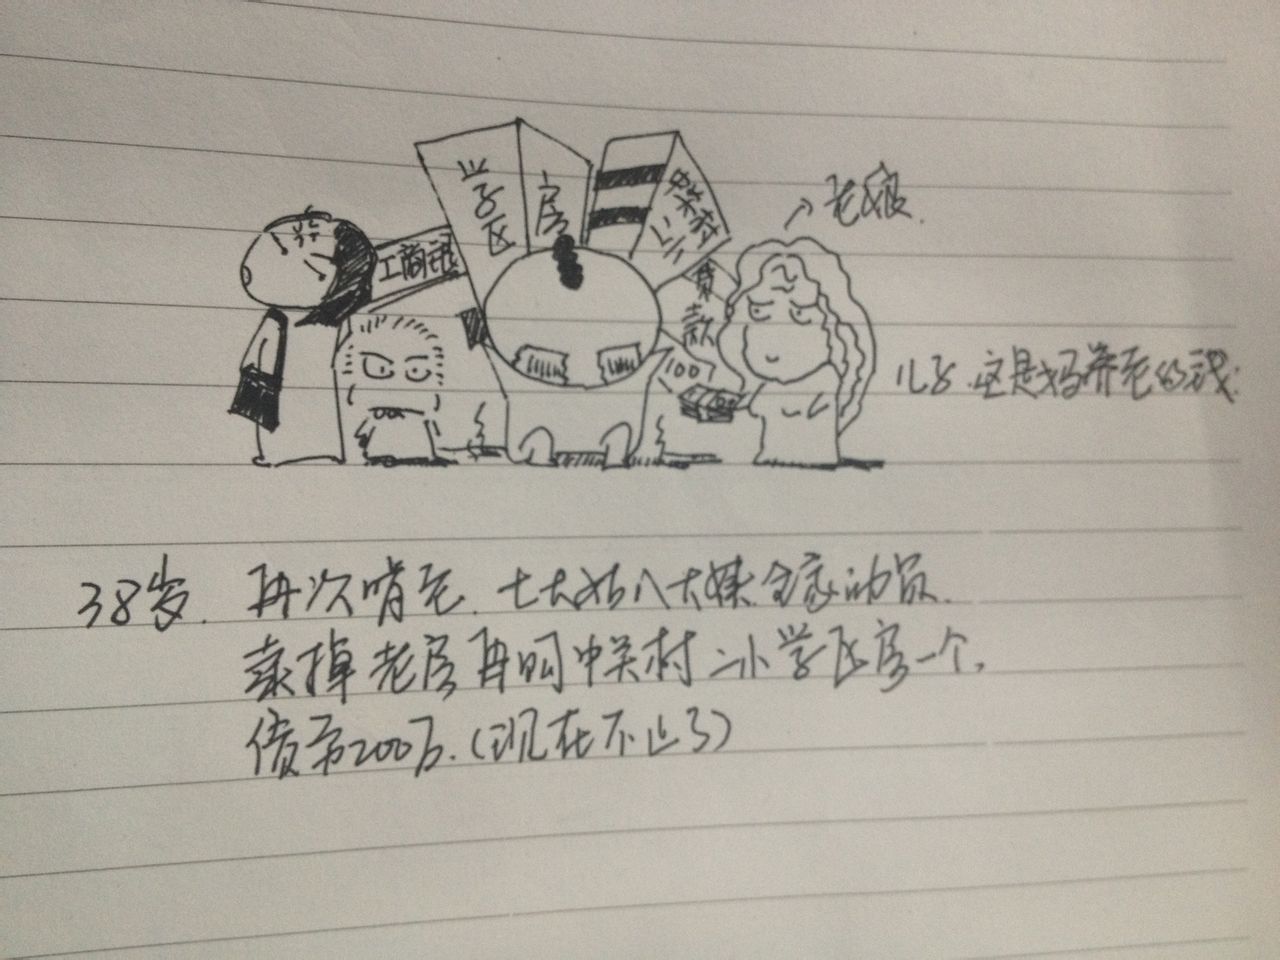 学区房
中关村
二小
工商銀
贷款
100万
老娘
儿子.这是妈养老的钱.
38岁.再次啃老.七大姑八大姨全家动员.
卖掉老房再购中关村二小学区房一个.
债务200万.(现在不止了)